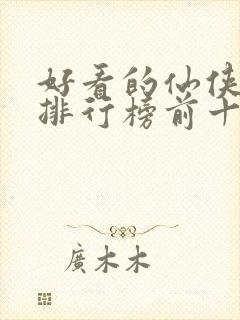 好看的仙侠
排行榜前十
廣木木